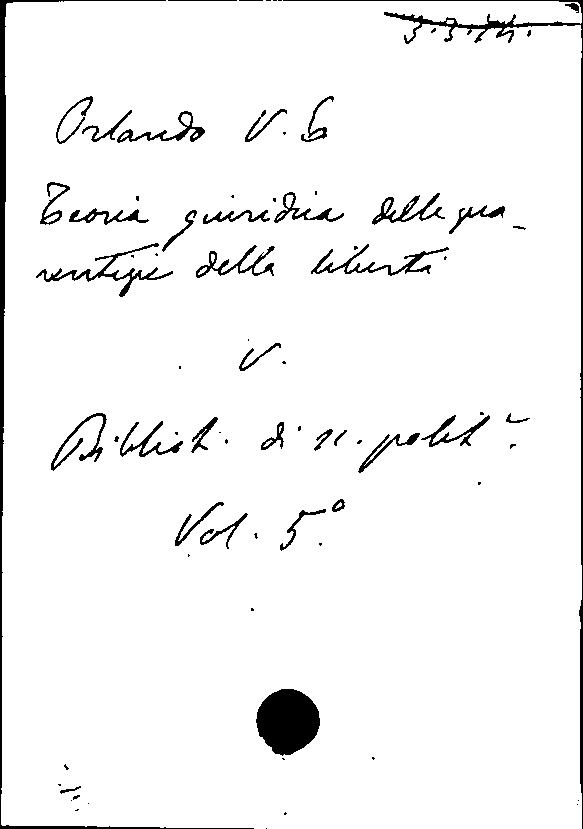 3.3.14.
Orlando V. E
Teoria giuridica delle gua-
rentigie della libertà
V.
Bibliot. di sc. polit.
Vol. 5º